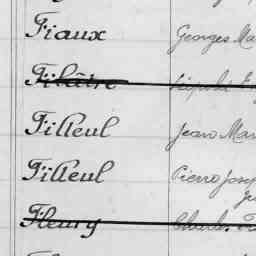 Fiaux Georges Ma
Filâtre
Filleul Jean Mar
Filleul Pierre Jose
Fleury Charles